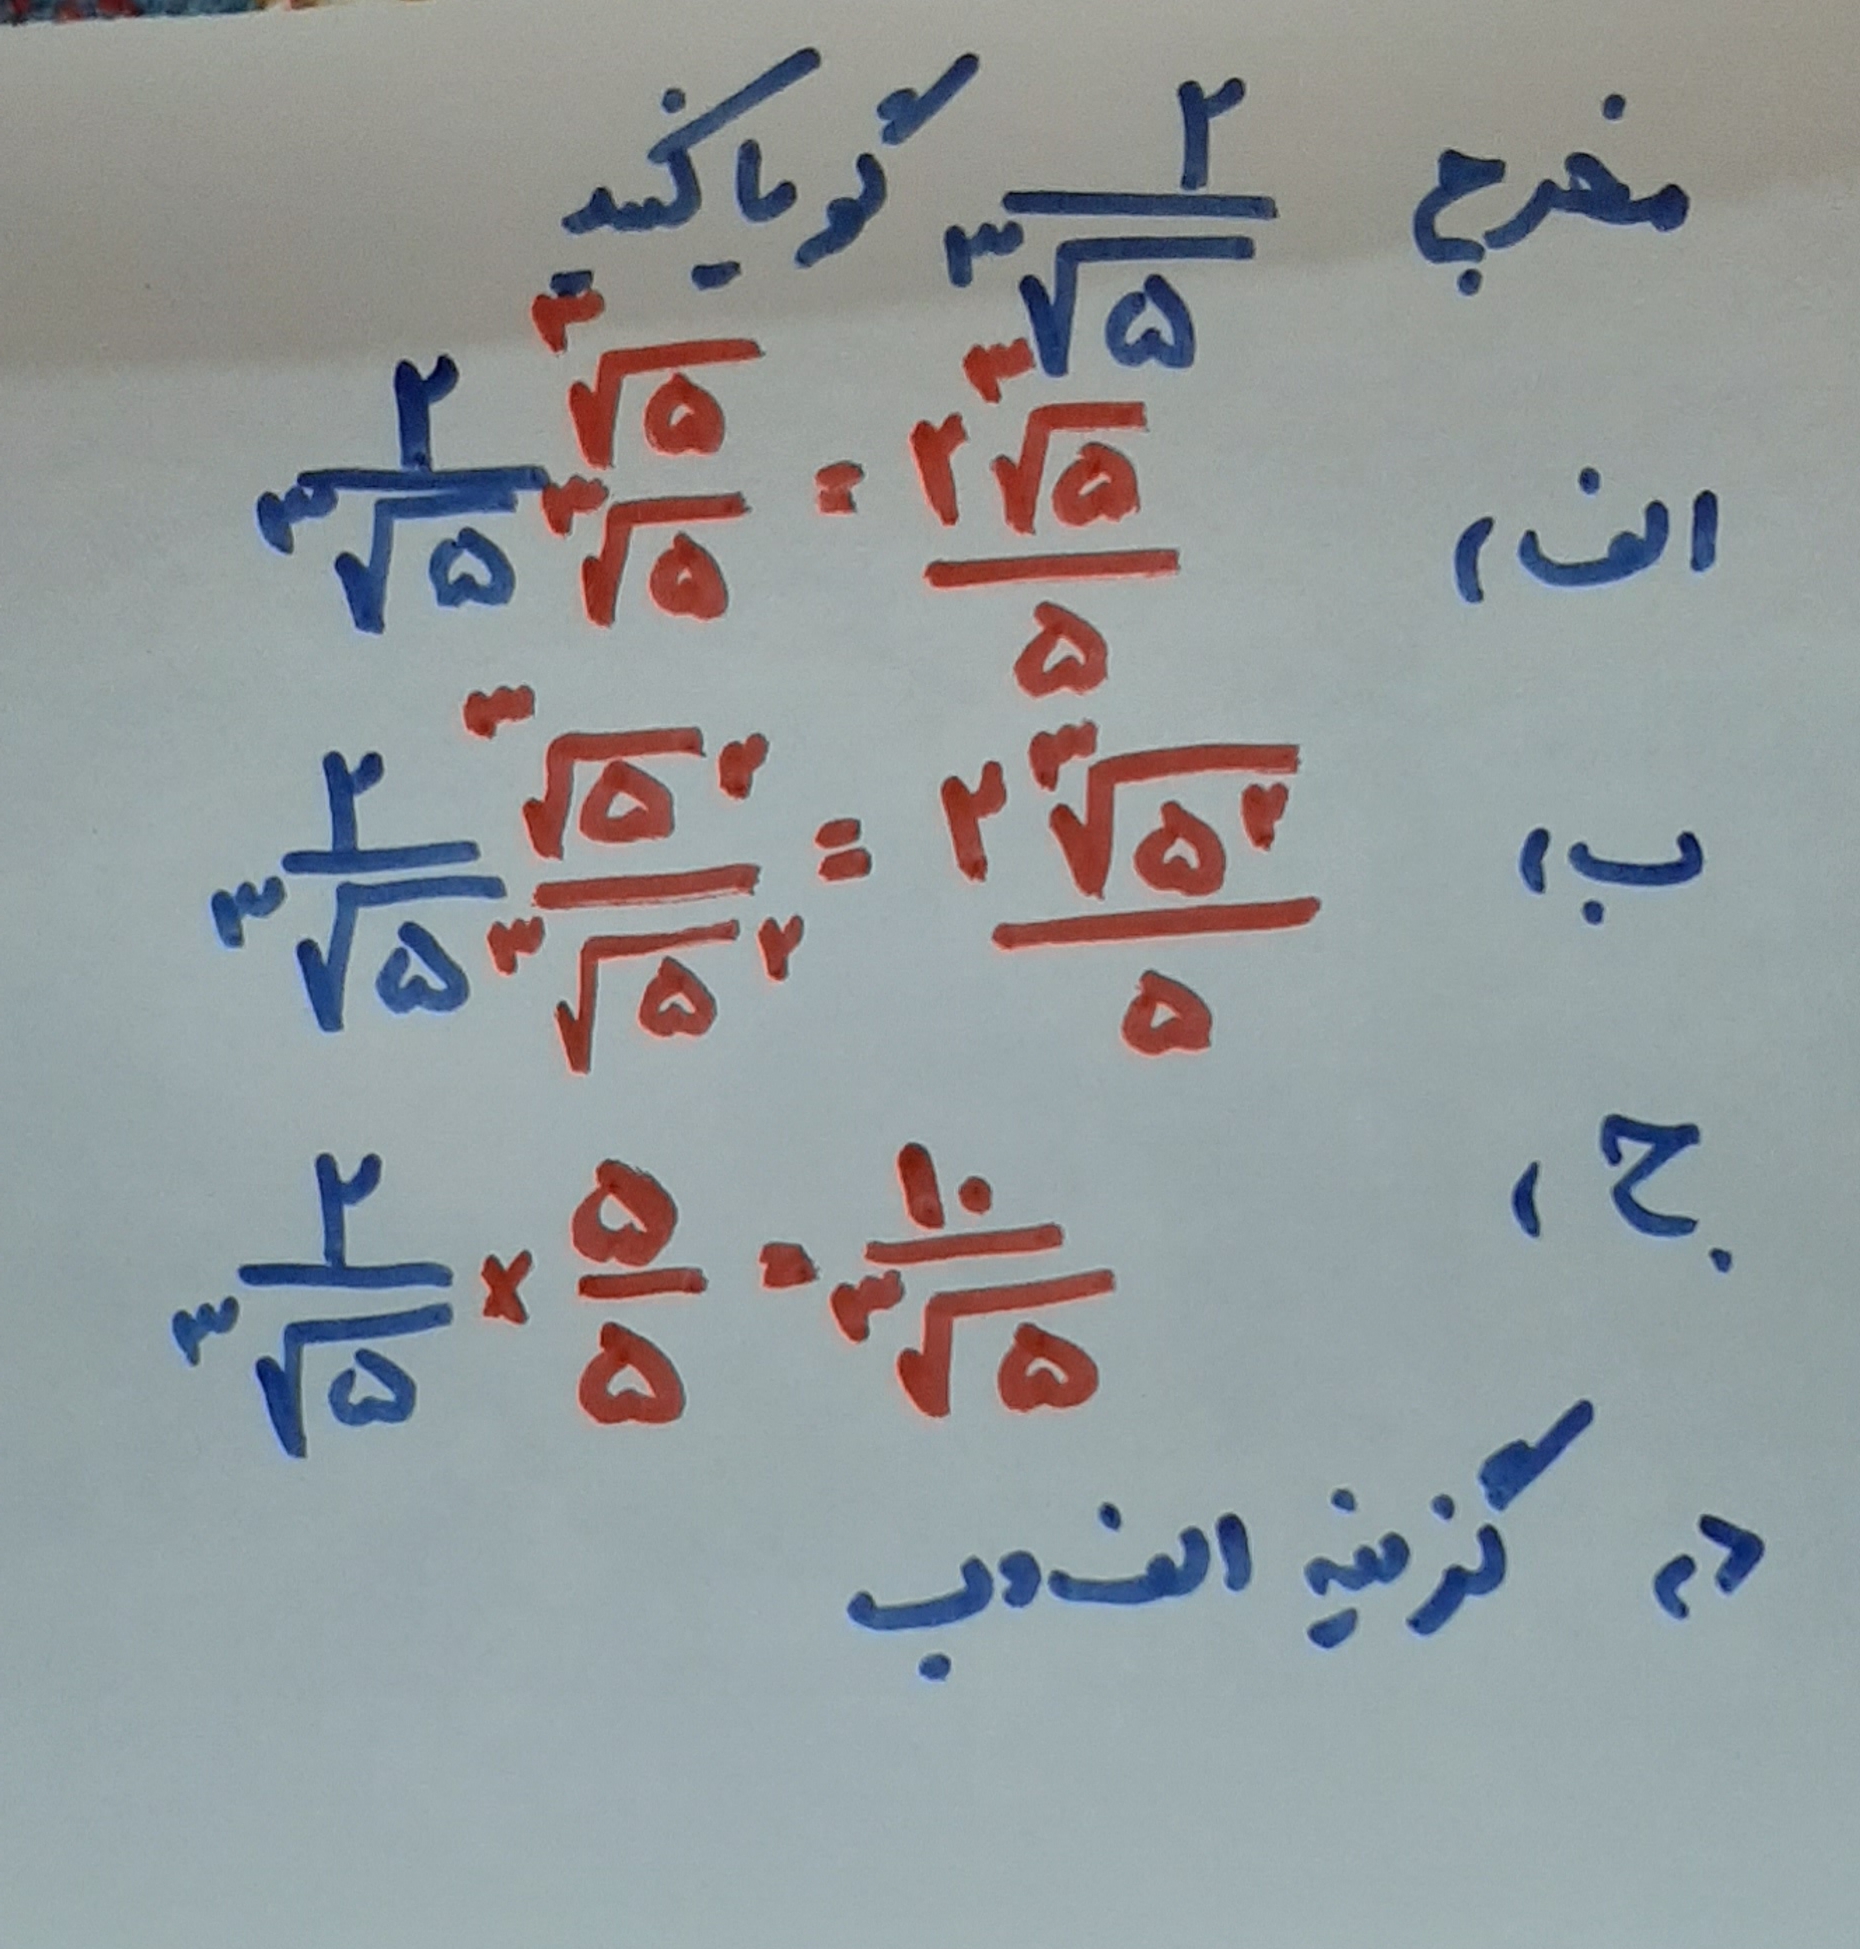 مخرج ۲/∛۵ گویا کنید
الف) ۲/∛۵ ∛۵/∛۵ = ۲∛۵/۵
ب) ۲/∛۵ ∛۵۲/∛۵۲ = ۲∛۵۲/۵
ج) ۲/∛۵ × ۵/۵ = ۱۰/∛۵
د) گزینه الف و ب